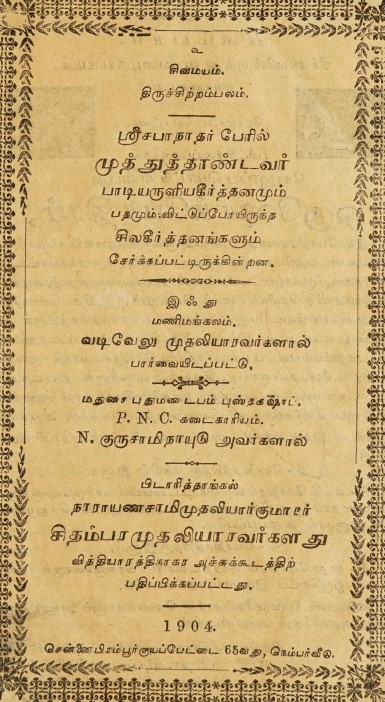 உ
சிவமயம்.
திருச்சிற்றம்பலம்.
ஸ்ரீசபாநாதர் பேரில்
முத்துத்தாண்டவர்
பாடியருளியகீர்த்தனமும்
பதமும்விட்டுப்போயிருந்த
சிலகீர்த்தனங்களும்
சேர்க்கப்பட்டிருக்கின்றன.
இஃது
மணிமங்கலம்.
வடிவேலு முதலியாரவர்களால்
பார்வையிடப்பட்டு.
மதுரை புதுமண்டபம் புஸ்தகஷாப்.
P. N. C. கடைகாரியம்.
N. குருசாமிநாயுடு அவர்களால்
பிடாரித்தாங்கல்
நாராயணசாமிமுதலியார்குமாரர்
சிதம்பரமுதலியாரவர்களது
வித்தியாரத்நாகர அச்சுக்கூடத்திற்
பதிப்பிக்கப்பட்டது.
1904.
சென்னைபிரம்பூர்குயப்பேட்டை 65வது, நெம்பர்வீடு.